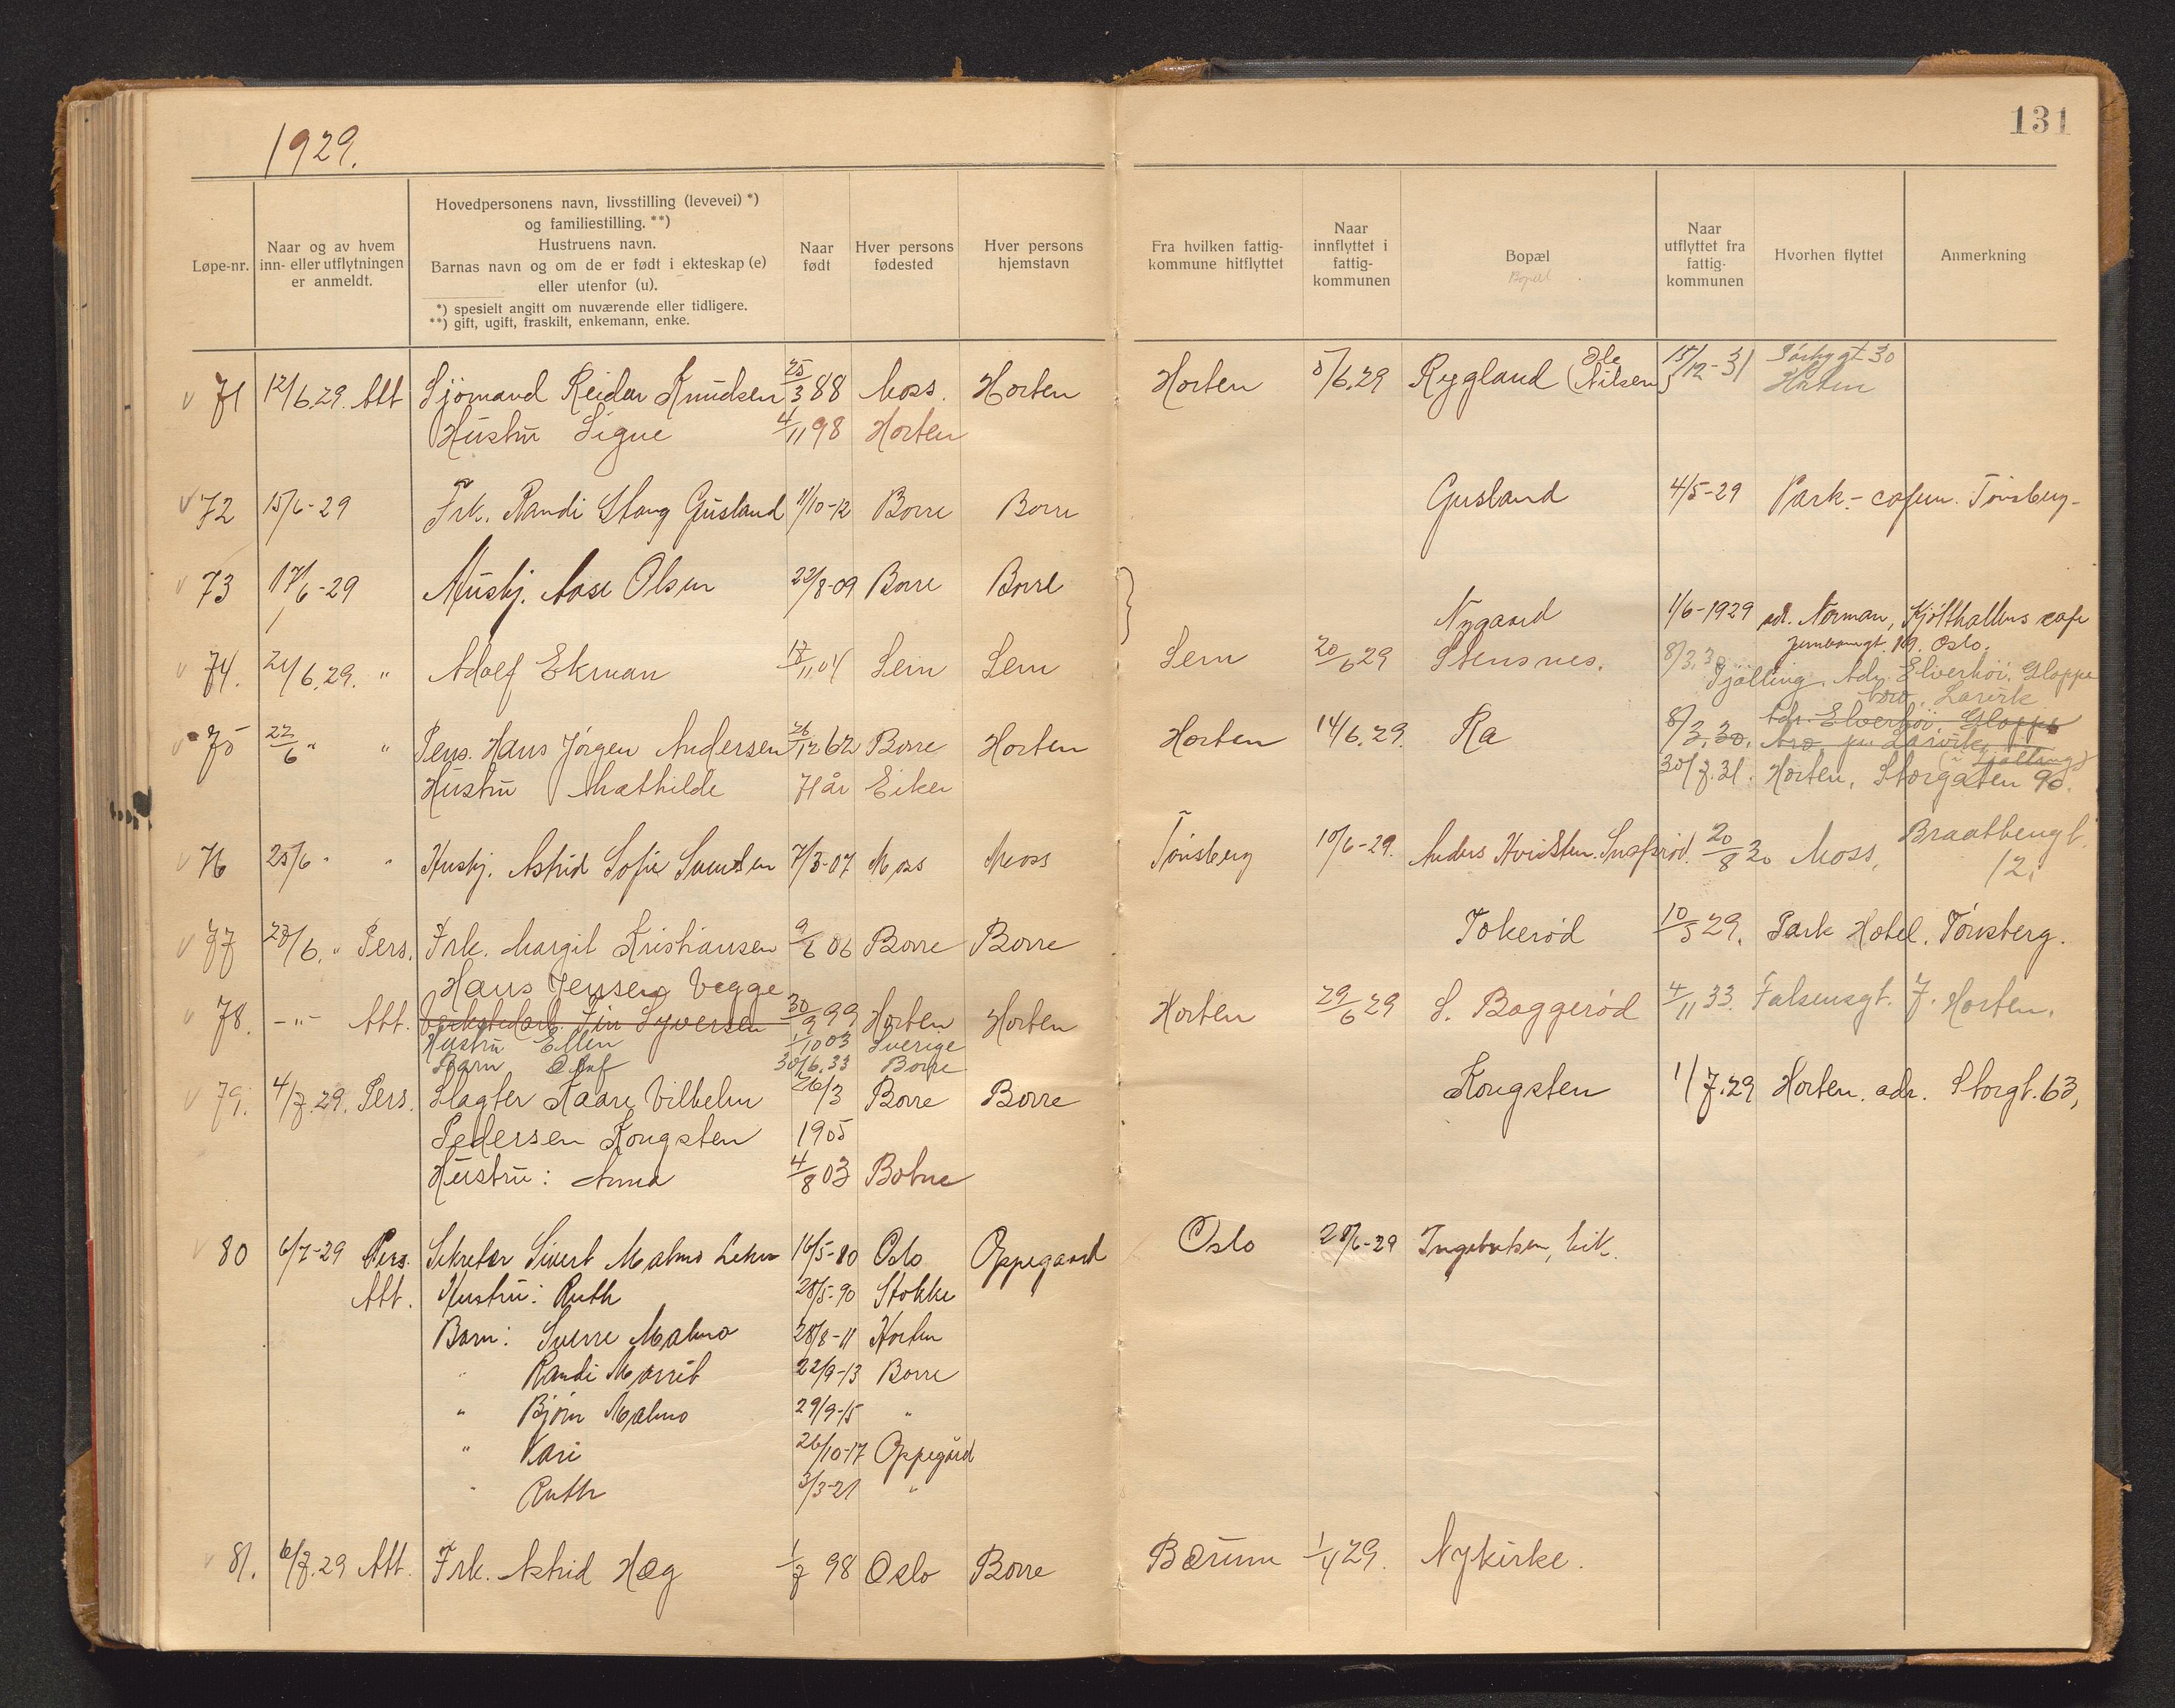 1929.
131
Løpe-nr.
Naar og av hvem inn- eller utflytningen er anmeldt.
Hovedpersonens navn, livsstilling (levevei) *)
og familiestilling. **)
Hustruens navn.
Barnas navn og om de er født i ekteskap (e)
eller utenfor (u).
*) spesielt angitt om nuværende eller tidligere.
**) gift, ugift, fraskilt, enkemann, enke.
Naar født
Hver persons fødested
Hver persons hjemstavn
Fra hvilken fattigkommune hitflyttet
Naar innflyttet i fattigkommunen
Bopæl
Bopæl
Naar utflyttet fra fattigkommunen
Hvorhen flyttet
Anmerkning
71 12/6.29. Att Sjömand Reidar Knudsen 25/3 88 Moss. Horten Horten 5/6.29 Rygland (Ole Nilsen) 15/12-31 30
Horten
Hustru Signe 4/11 98 Horten
72 15/6-29 Frk. Randi Stang Gusland 11/10-12 Borre Borre Gusland 4/5-29 Park-cafeen. Tönsberg-
73 17/6-29 Aase Olsen 22/8-09 Borre Borre Nygaard 1/6-1929 adr. Norman, cafe
19. Oslo.
74. 21/6.29. " Adolf Ekman 17/11 04 Sem Sem Sem 20/6 29 Stensnes. 8/3.30
Tjölling. Adr. Elverhöi. Gloppe
Larvik
75 22/6 " " Pens. Hans Jörgen Andersen 26/12 62 Borre Horten Horten 14/6.29. Ra 8/3.30. Adr. Elverhöi. Gloppe
pr. Larvik (i Tjölling)
Hustru Mathilde 71 år Eiker 30/7.31. Horten, Storgaten 90.
76 25/6 " " Husbj. Astrid Sofie 7/3-07 Moss Moss Tönsberg 10/6-29. Anders Hvidsten. 20/8 30 Moss, Braathengt.
12.
77 28/6. " Pers. Frk. Margit Kristiansen 9/6 06 Borre Borre Tokerød 10/5 29. Park Hotel. Tönsberg.
Hans Jensen Vegge
78. -"- Att. Verkstedarb. Fin Syversen 30/9 99 Horten Horten Horten 29/6 29 S. Baggerød 4/11 33. Falsensgt. 7. Horten.
Hustru Ellen 1/10 03 Sverige
Barn Oluf 30/6.33 Borre
79. 4/7.29. Pers. Slagter Kaare Vilhelm 26/3 Borre Borre Kongsten 1/7.29 Horten. adr. Storgt. 63,
Pedersen Kongsten 1905
Hustru: Anna 4/8 03 Botne
80 6/7-29 Pers. Sekretær Sivert Malmo 16/5-80 Oslo Oppegaard Oslo 28/6-29
Att. Hustru: Ruth 28/5-90 Stokke
Barn: Sverre Malmo 28/8-11 Horten
Randi 22/9-13 Borre
" Bjørn Malmo 29/9-15 "
" Kari 26/10-17 Oppegård
" Ruth 3/3-21 "
81. 6/7.29 Att. Frk. Astrid Høg 1/7 98 Oslo Borre Bærum 1/4 29. Nykirke.